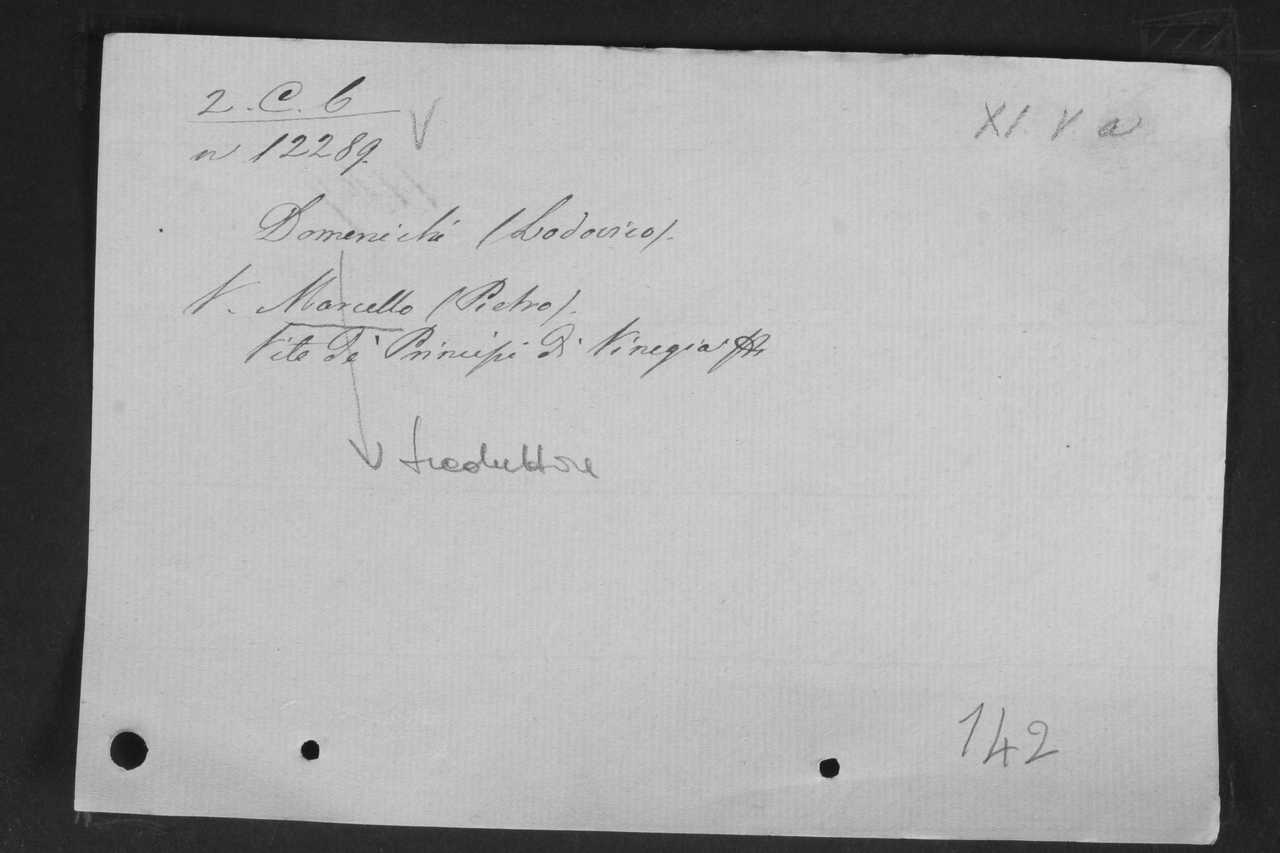 2. C. 6
XI V a
nº 12289.
Domenichi (Lodovico).
V. Marcello (Pietro).
Vite de' Principi di Vinegia
traduttore
142